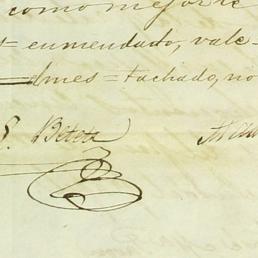 como mejor
enmendado, vale
= tachado, no
S. Beteta